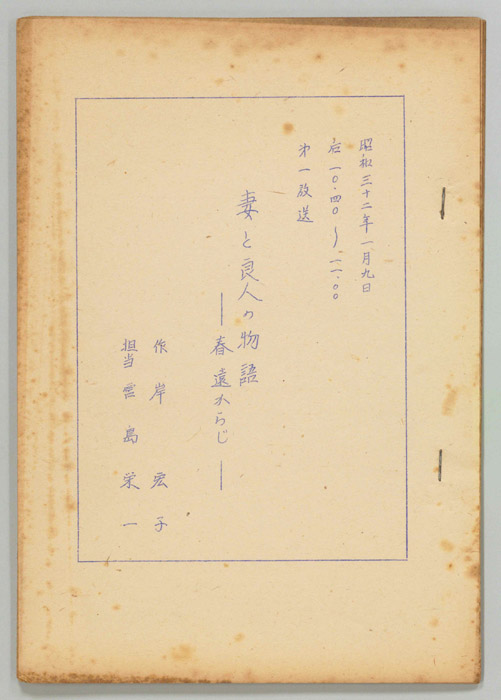 昭和三十二年一月九日
后一〇・四〇〜一一・〇〇
第一放送
妻と良人の物語
――春遠からじ――
作 岸 宏子
担当 宮島栄一